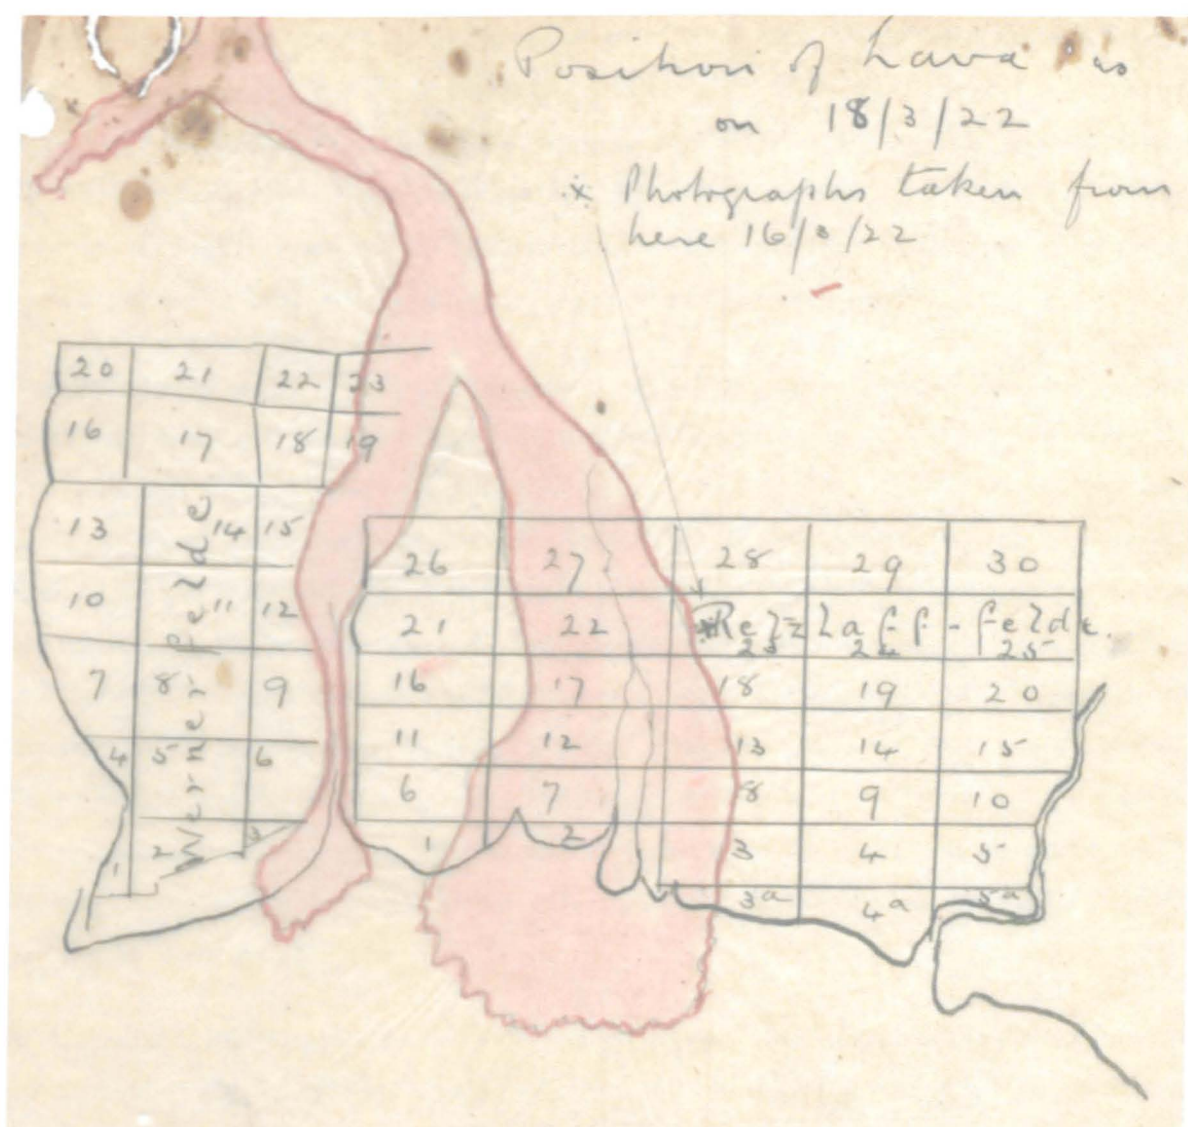 Position of Lava as
on 18/3/22
* Photographs taken from
here 16/3/22
20 21 22 23
16 17 18 19
13 14 15
10 11 12
7 8 9
4 5 6
1 2 3
Werner felde
26 27 28 29 30
21 22 23 24 25
Retzlaff-felde.
16 17 18 19 20
11 12 13 14 15
6 7 8 9 10
1 2 3 4 5
3a 4a 5a